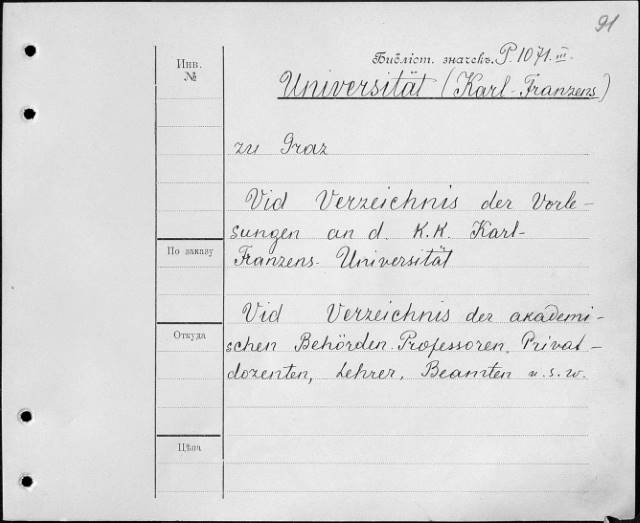 91
Инв.
№
Библіот. значекъ. P. 1071. III.
Universität (Karl-Franzens)
zu Graz
Vid Verzeichnis der Vorle-
sungen an d. K.K. Karl-
Franzens-Universität
По заказу
Vid Verzeichnis der akademi-
schen Behörden. Professoren, Privat-
dozenten, Lehrer, Beamten u. s. w.
Откуда
Цѣна